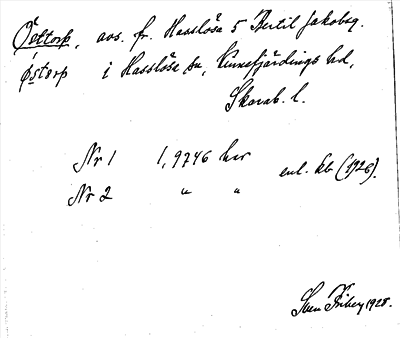 Östtorp, avs. fr. Hasslösa 5 Bertil Jakobsg.
östorp i Hasslösa sn, Kinnefjärdings hd,
Skarab. l.
Nr 1 1,9746 har enl. kb (1926).
Nr 2 " "
Sven Friberg 1928.